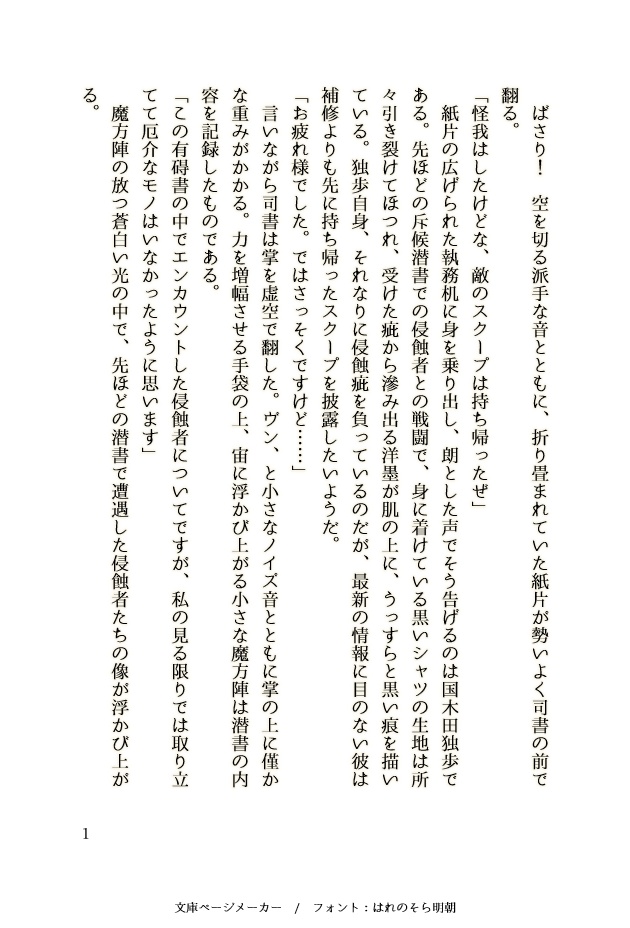 ばさり！　空を切る派手な音とともに、折り畳まれていた紙片が勢いよく司書の前で
翻る。
「怪我はしたけどな、敵のスクープは持ち帰ったぜ」
紙片の広げられた執務机に身を乗り出し、朗とした声でそう告げるのは国木田独歩で
ある。先ほどの斥候潜書での侵蝕者との戦闘で、身に着けている黒いシャツの生地は所
々引き裂けてほつれ、受けた疵から滲み出る洋墨が肌の上に、うっすらと黒い痕を描い
ている。独歩自身、それなりに侵蝕疵を負っているのだが、最新の情報に目のない彼は
補修よりも先に持ち帰ったスクープを披露したいようだ。
「お疲れ様でした。ではさっそくですけど……」
言いながら司書は掌を虚空で翻した。ヴン、と小さなノイズ音とともに掌の上に僅か
な重みがかかる。力を増幅させる手袋の上、宙に浮かび上がる小さな魔方陣は潜書の内
容を記録したものである。
「この有碍書の中でエンカウントした侵蝕者についてですが、私の見る限りでは取り立
てて厄介なモノはいなかったように思います」
魔方陣の放つ蒼白い光の中で、先ほどの潜書で遭遇した侵蝕者たちの像が浮かび上が
る。
1
文庫ページメーカー　/　フォント：はれのそら明朝